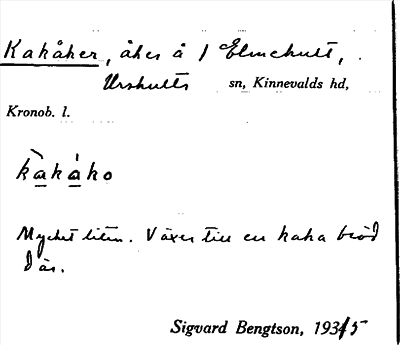 Kakåker, åker å / Elmehult,
Urshults sn, Kinnevalds hd,
Kronob. l.
kakåko
Mycket liten. Växer till en kaka bröd
där.
Sigvard Bengtson, 1935